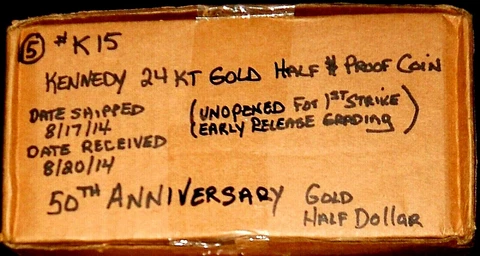 ⑤ #K15
KENNEDY 24 KT GOLD HALF $ PROOF COIN
DATE SHIPPED
8/17/14
DATE RECEIVED
8/20/14
(UNOPENED FOR 1ST STRIKE
EARLY RELEASE GRADING)
50TH ANNIVERSARY GOLD
HALF DOLLAR